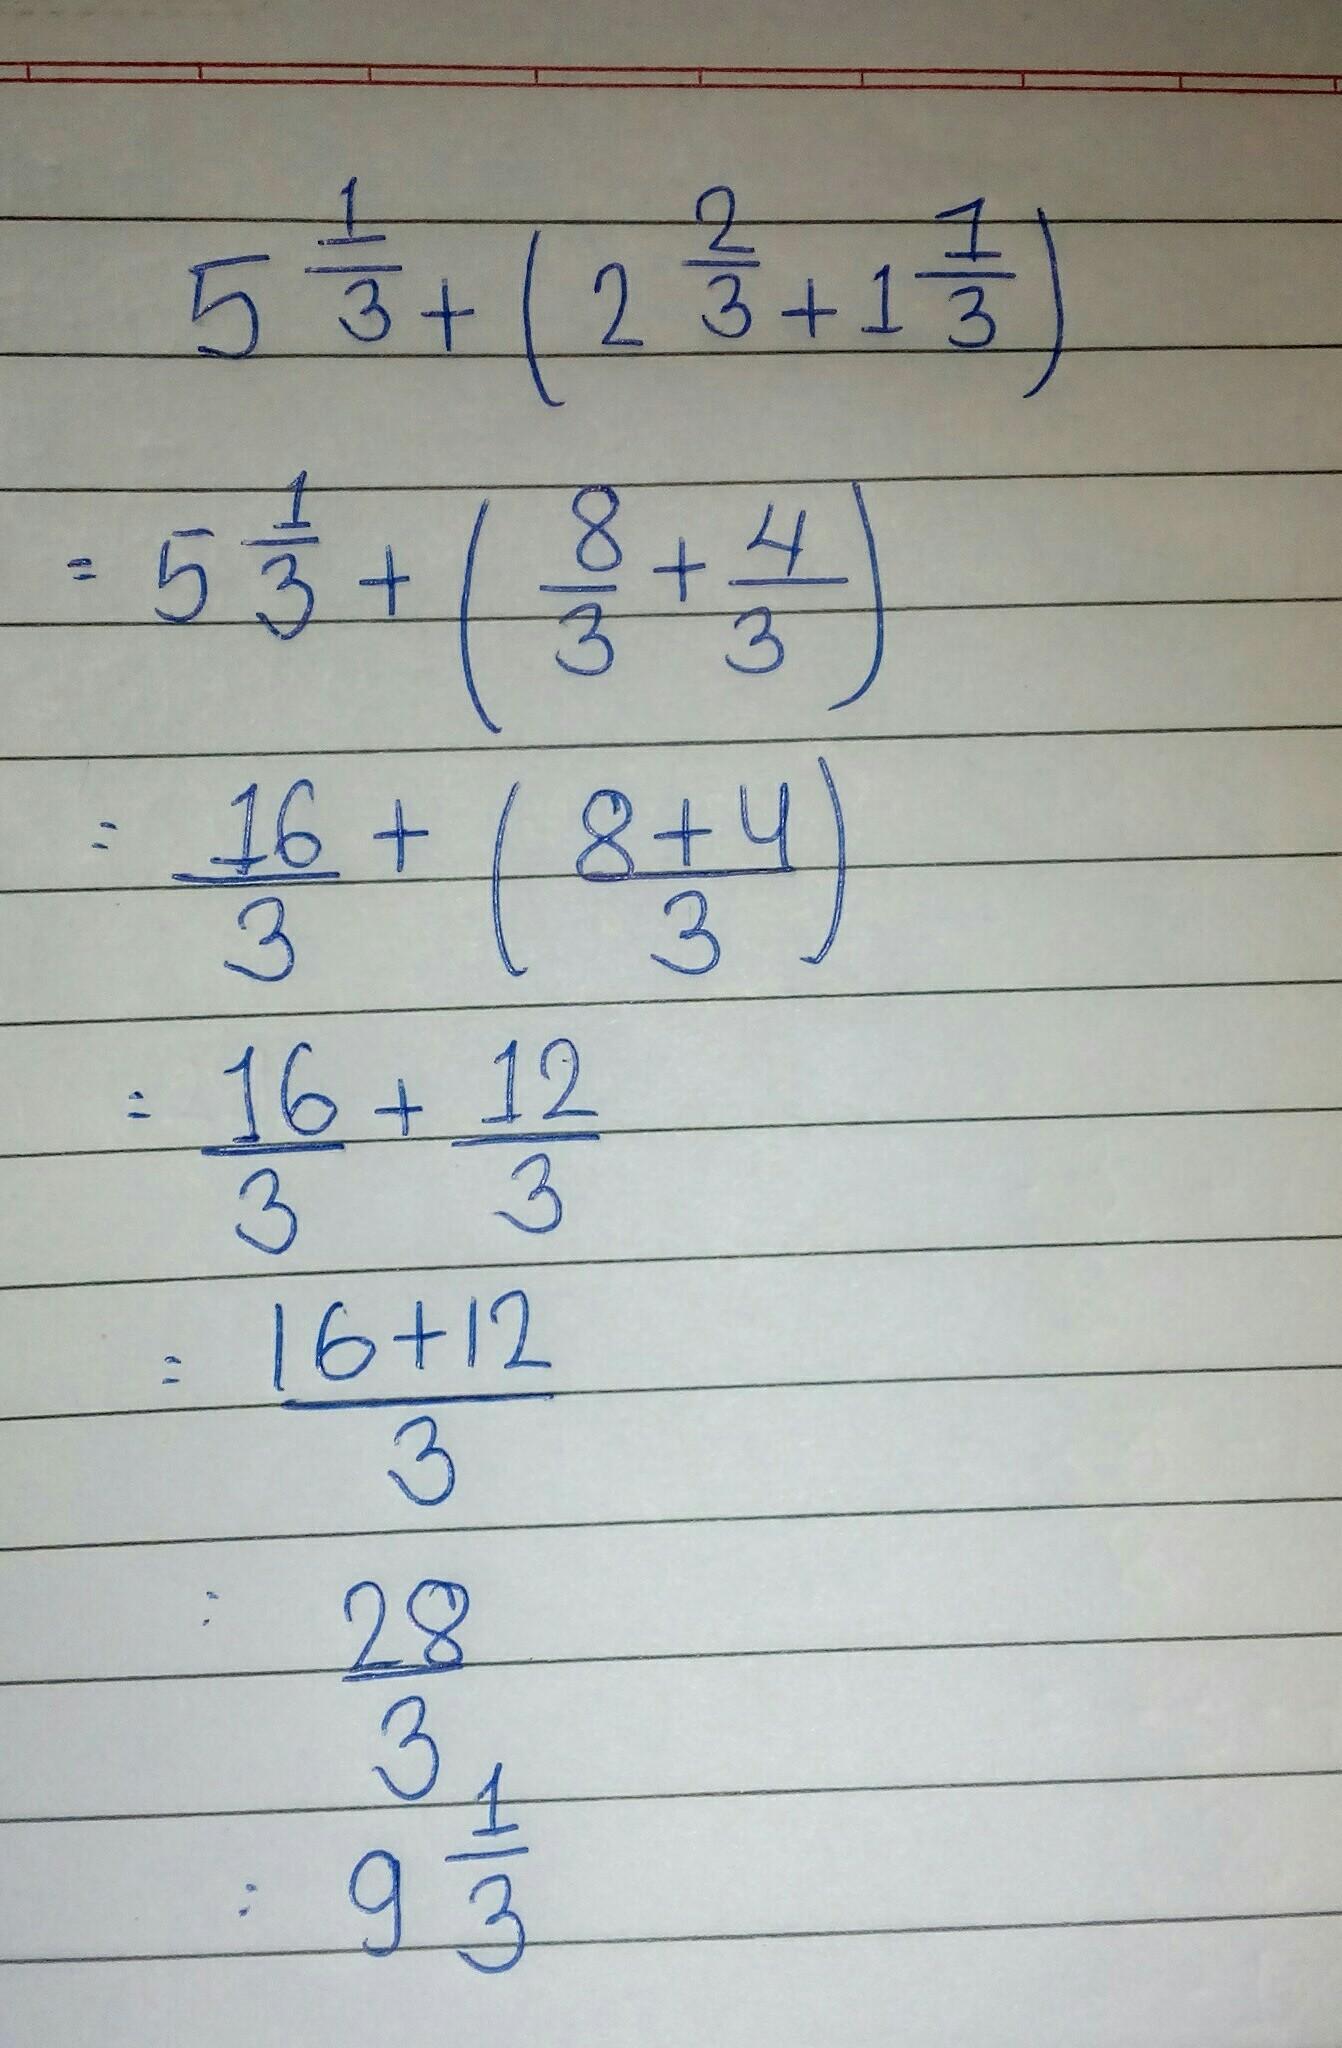 5 1/3 + ( 2 2/3 + 1 1/3 )
= 5 1/3 + ( 8/3 + 4/3 )
= 16/3 + ( 8+4/3 )
= 16/3 + 12/3
= 16+12/3
= 28/3
= 9 1/3